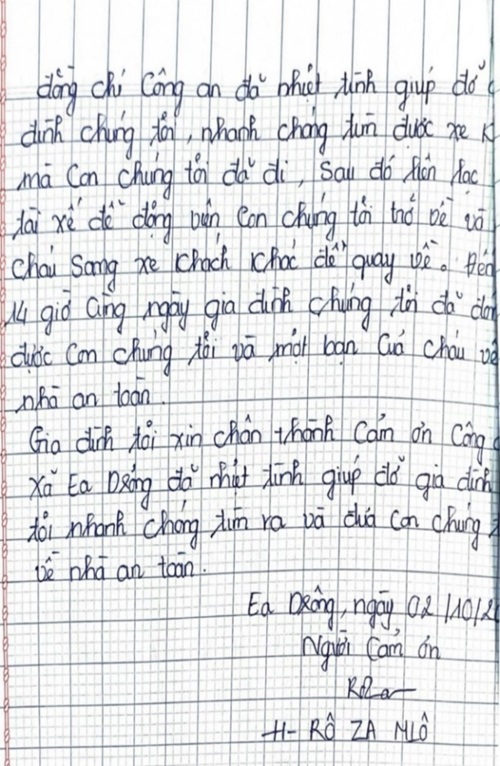 đồng chí Công an đã nhiệt tình giúp đỡ
đình chúng tôi, nhanh chóng tìm được xe k
mà con chúng tôi đã đi, Sau đó liên lạc
tài xế để động viên con chúng tôi trở về và
cháu sang xe khách khác để quay về. Đến
14 giờ cùng ngày gia đình chúng tôi đã đón
được con chúng tôi và một bạn của cháu về
nhà an toàn.
Gia đình tôi xin chân thành cảm ơn Công
xã Ea Drông đã nhiệt tình giúp đỡ gia đình
tôi nhanh chóng tìm ra và đưa con chúng
về nhà an toàn.
Ea Drông, ngày 02/10/2
Người cảm ơn
Roza
H- RÔ ZA MLÔ